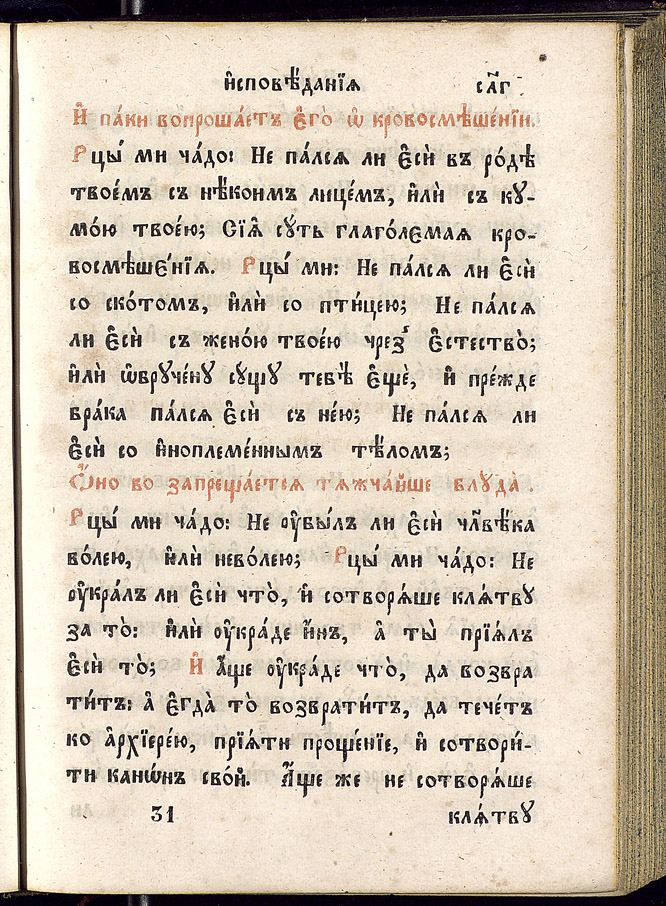 и҆сповѣ́данїѧ сл҃г
И҆ па́ки вопроша́етъ є҆го̀ ѡ҆ кровосмѣше́нїи.
Рцы́ ми ча́до: Не па́лсѧ ли є҆сѝ въ ро́дѣ
твое́мъ съ нѣ́коимъ лице́мъ, и҆лѝ съ ку-
мо́ю твое́ю; Сїѧ̑ сꙋ́ть глаго́лемая кро-
восмѣше́нїѧ. Рцы́ ми: Не па́лсѧ ли є҆сѝ
со ско́томъ, и҆лѝ со пти́цею; Не па́лсѧ
ли є҆сѝ съ жено́ю твое́ю чрез̾ є҆стество̀;
и҆лѝ ѡ҆брꙋче́нꙋ сꙋщꙋ тебѣ̀ є҆щѐ, и҆ пре́жде
бра́ка па́лсѧ є҆сѝ съ не́ю; Не па́лсѧ ли
є҆сѝ со и҆ноплеме́ннымъ тѣ́ломъ;
Ѻ҆́но бо запреща́етсѧ тѧжча́йше блꙋда̀.
Рцы́ ми ча́до: Не ᲂу҆бы́лъ ли є҆сѝ чл҃вѣ́ка
во́лею, и҆лѝ нево́лею; Рцы́ ми ча́до: Не
ᲂу҆кра́лъ ли є҆сѝ что̀, и҆ сотворѧ́ше клѧ́твꙋ
за то̀: и҆лѝ ᲂу҆кра́де и҆́нъ, а҆ ты̀ прїѧ́лъ
є҆сѝ то̀; И҆ а҆́ще ᲂу҆кра́де что̀, да возвра
ти́тъ: а҆ є҆гда̀ то̀ возврати́тъ, да тече́тъ
ко а҆рхїере́ю, прїѧ́ти проще́нїе, и҆ сотвори́-
ти канѡ́нъ сво́й. А҆́ще же не сотворѧ́ше
31 клѧ́твꙋ